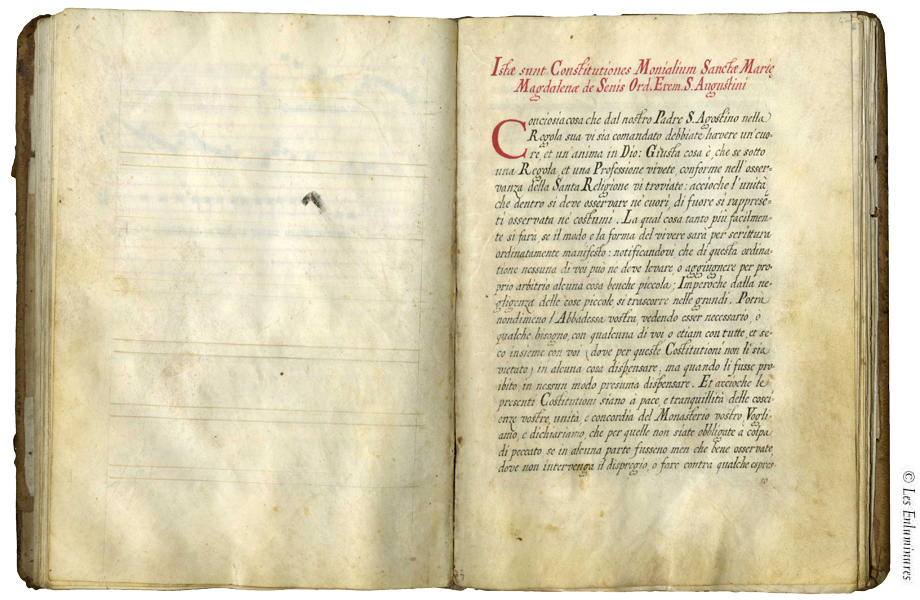 Istæ sunt Constitutiones Monialium Sanctæ Marie
Magdalenæ de Senis Ord. Erem. S. Augustini
Conciosia cosa che dal nostro Padre S. Agostino nella
Regola sua vi sia comandato debbiate havere un cuo-
re, et un anima in Dio: Giusta cosa è, che se sotto
una Regola, et una Professione vivete, conforme nell'osser-
vanza della Santa Religione vi troviate: accioche l'unità,
che dentro si deve osservare ne cuori, di fuore si rapprese-
ti osservata ne costumi. La qual cosa tanto più facilmen-
te si farà, se il modo e la forma del vivere sarà per scrittura
ordinatamente manifesto: notificandovi che di questa ordina-
tione nessuna di voi può ne deve levare, o aggiugnere per pro-
prio arbitrio alcuna cosa benche piccola; Imperoche dalla ne-
gligenza delle cose piccole si trascorre nelle grandi. Potrà
nondimeno l'Abbadessa vostra, vedendo esser necessario, o
qualche bisogno, con qualcuna di voi o etiam con tutte, et se-
co insieme con voi (dove per queste Costitutioni non li sia
vietato) in alcuna cosa dispensare, ma quando li fusse pro-
ibito, in nessun modo presuma dispensare. Et accioche le
presenti Costitutioni siano a pace, e tranquillità delle cosci-
enze vostre, unità, e concordia del Monasterio vostro, Vogli-
amo, e dichiariamo, che per quelle non siate obbligate à colpa
di peccato se in alcuna parte fusseno men che bene osservate,
dove non intervenga il dispregio, o fare contra qualche espres-
so
© Les Enluminures